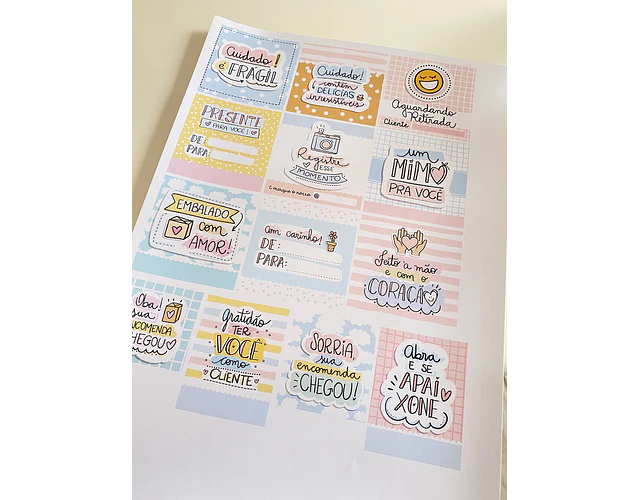 Cuidado!
é FRÁGIL
Cuidado!
contém
DELÍCIAS
irresistíveis
Aguardando
Retirada
Cliente
PRESENTE
PARA VOCÊ!
DE:
PARA:
Registre
ESSE
MOMENTO
E marque a nossa
um
MIMO
PRA VOCÊ
EMBALADO
com
AMOR!
Com carinho!
DE:
PARA:
Feito à mão
e com o
CORAÇÃO
Oba!
sua
ENCOMENDA
CHEGOU!
gratidão
TER
VOCÊ
como
CLIENTE
SORRIA,
sua
encomenda
CHEGOU!
Abra
E SE
APAI
XONE